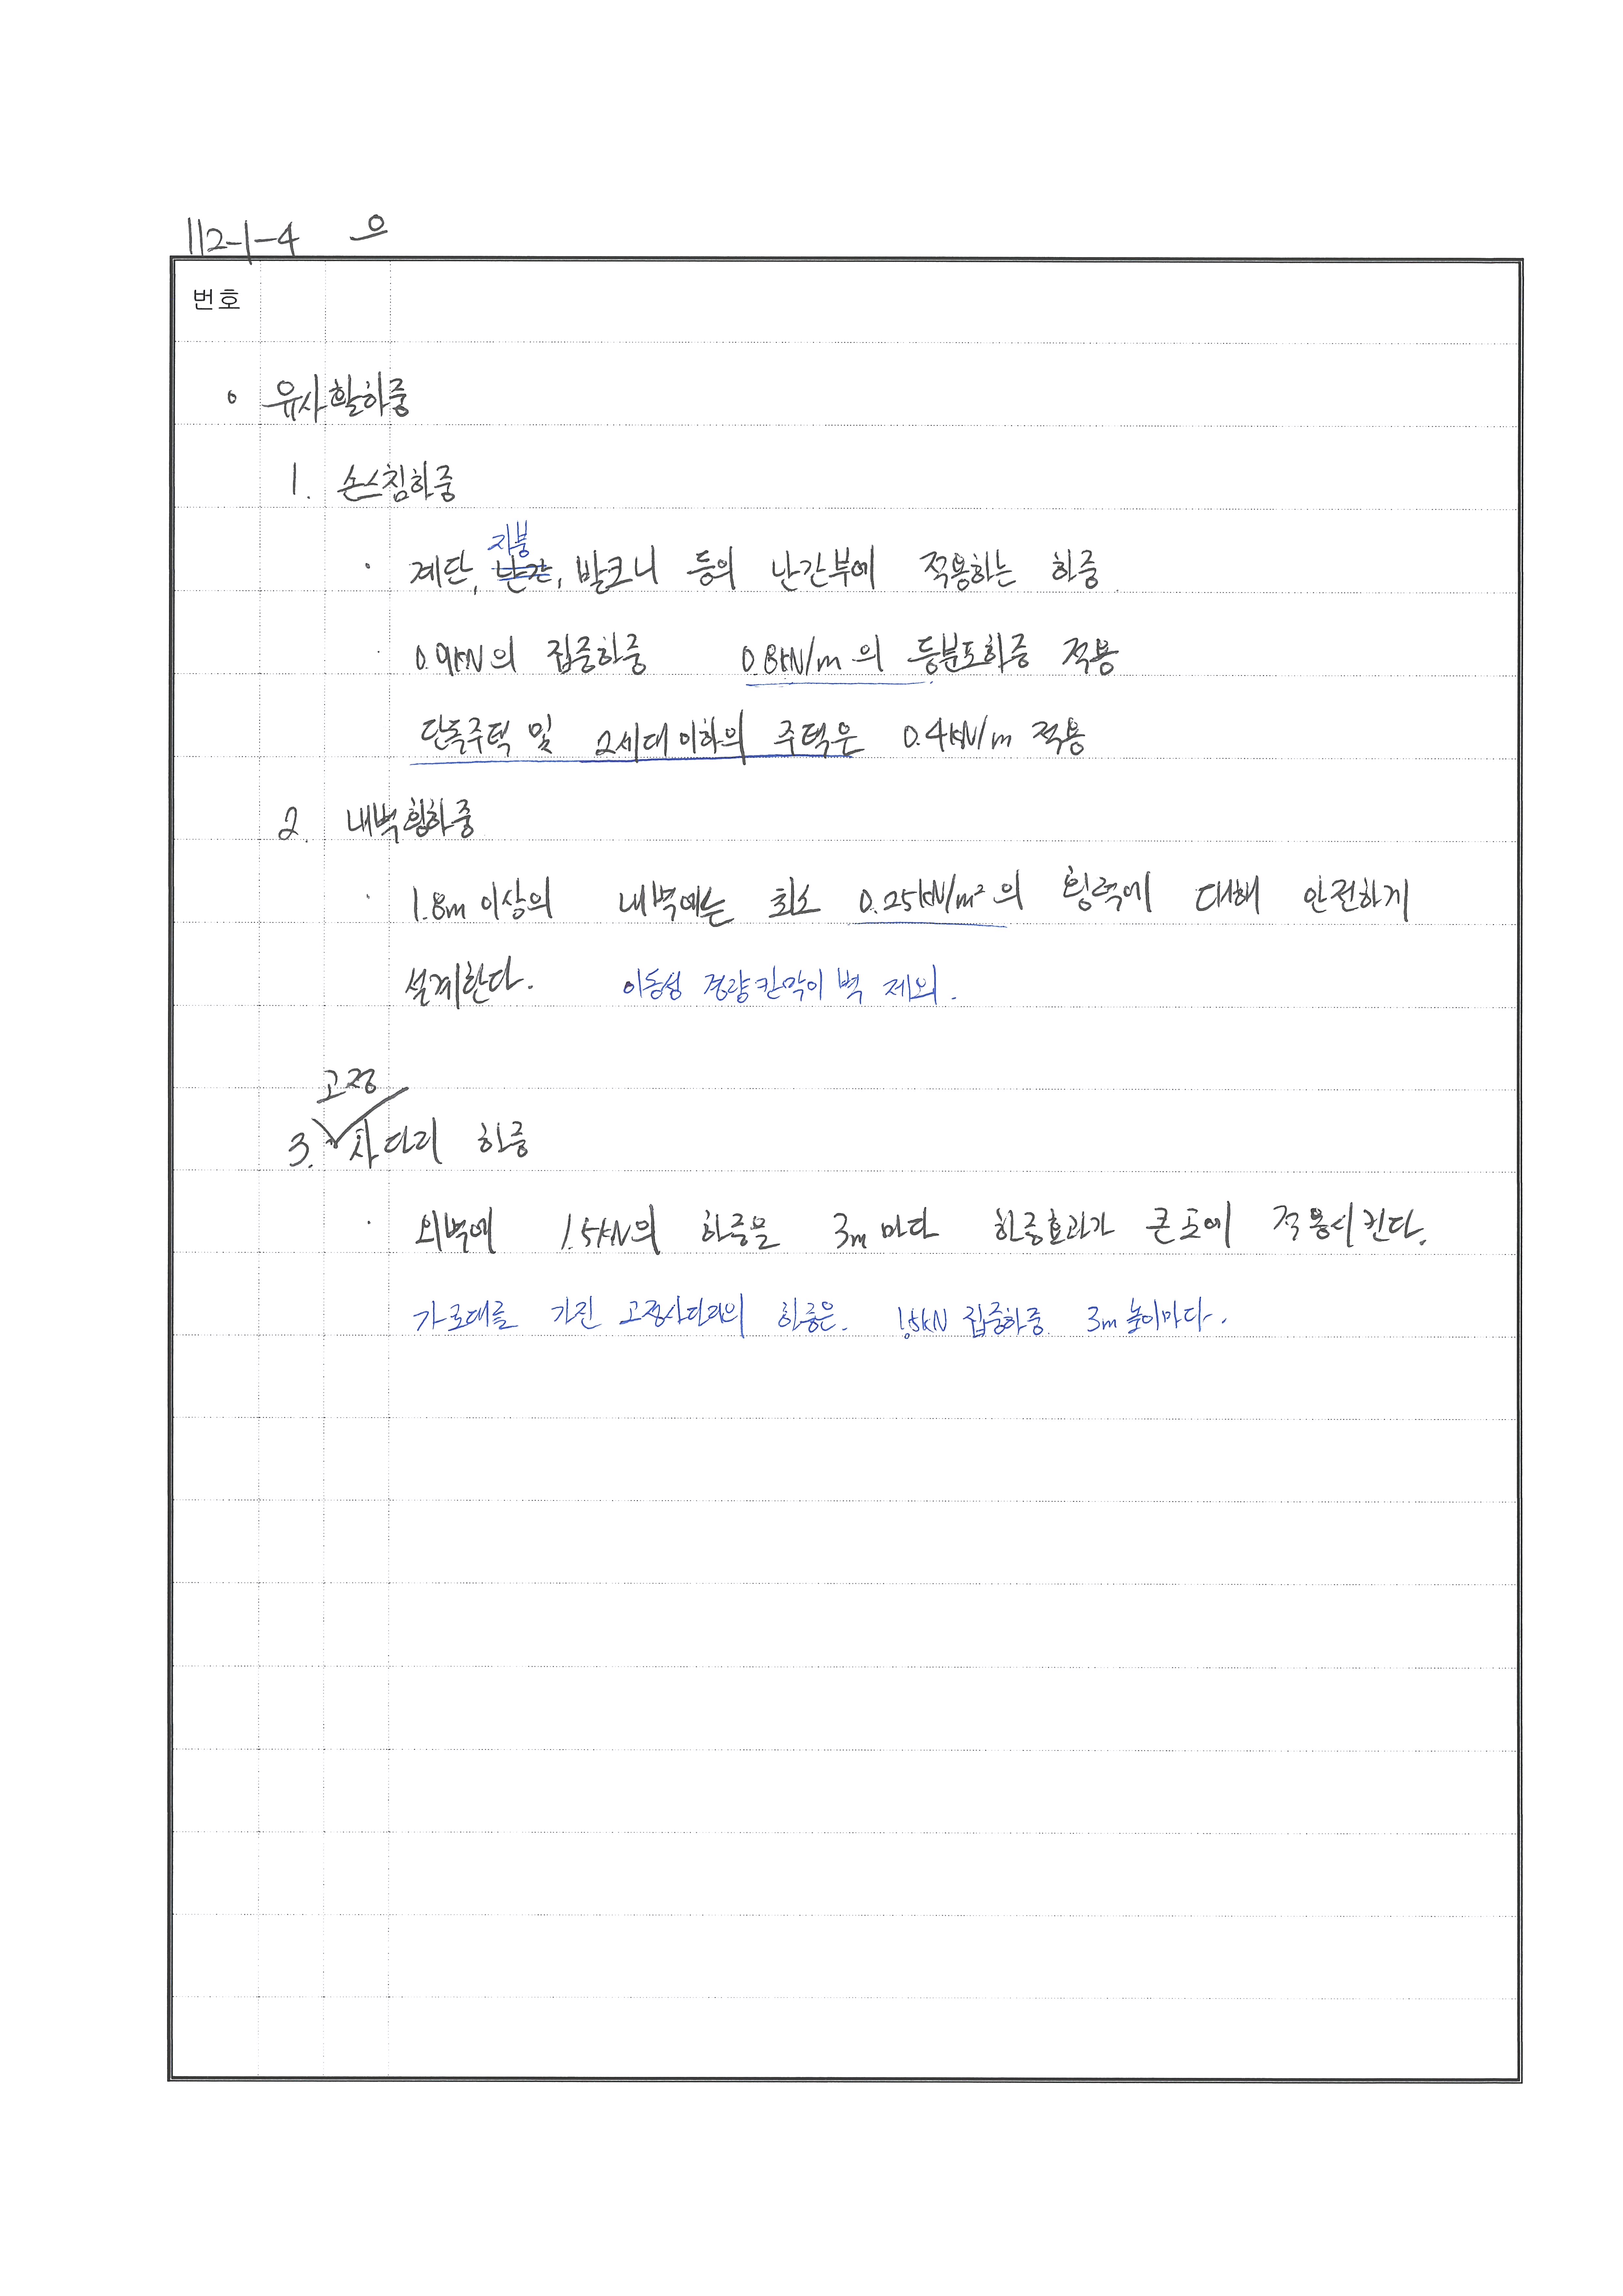 112-1-4 으
번호
◦ 유사활하중
1. 손스침하중
· 계단, 지붕, 발코니 등의 난간부에 적용하는 하중.
· 0.9kN의 집중하중 0.8kN/m의 등분포하중 적용
단독주택 및 2세대이하의 주택은 0.4kN/m 적용
2. 내벽횡하중
· 1.8m 이상의 내벽에는 최소 0.25kN/m²의 횡력에 대해 안전하게
설계한다. 이동성 경량칸막이 벽 제외.
고정
3. 사다리 하중
· 외벽에 1.5kN의 하중을 3m 마다 하중효과가 큰 곳에 적용시킨다.
가로대를 가진 고정사다리의 하중은. 1.5kN 집중하중. 3m 높이마다.